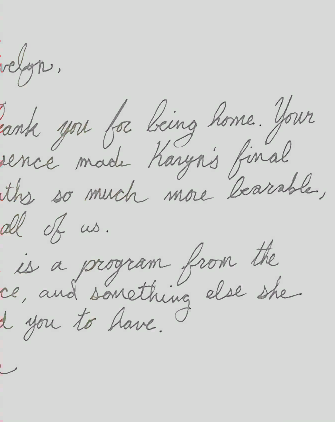 velyn,
ank you for being home. Your
sence made Karyn's final
ths so much more bearable,
all of us.
is a program from the
ce, and something else she
d you to have.